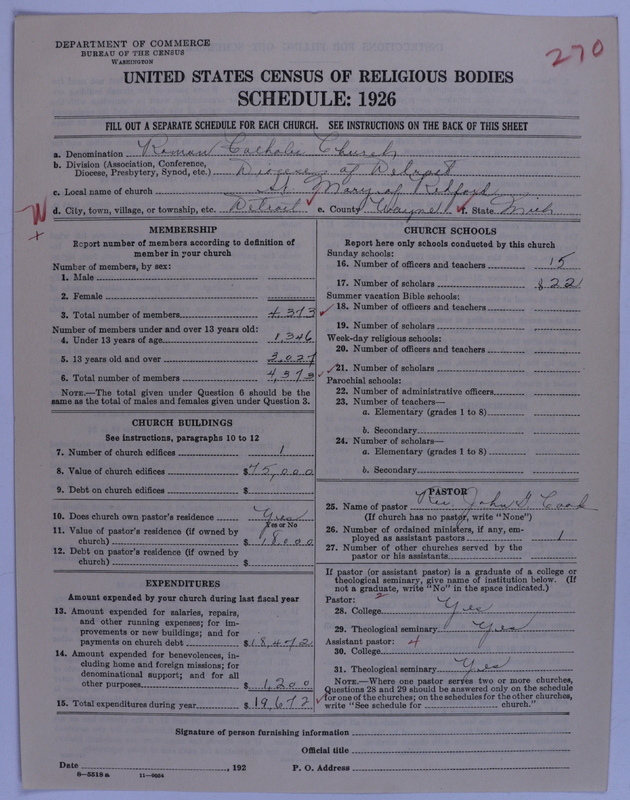 DEPARTMENT OF COMMERCE
BUREAU OF THE CENSUS
WASHINGTON
270
UNITED STATES CENSUS OF RELIGIOUS BODIES
SCHEDULE: 1926
FILL OUT A SEPARATE SCHEDULE FOR EACH CHURCH. SEE INSTRUCTIONS ON THE BACK OF THIS SHEET
a. Denomination Roman Catholic Church
b. Division (Association, Conference, Diocese, Presbytery, Synod, etc.) Diocese of Detroit
c. Local name of church St. Mary of Redford
d. City, town, village, or township, etc. Detroit e. County Wayne f. State Mich
MEMBERSHIP
Report number of members according to definition of
member in your church
Number of members, by sex:
1. Male
2. Female
3. Total number of members 4,373
Number of members under and over 13 years old:
4. Under 13 years of age 1,346
5. 13 years old and over 3,027
6. Total number of members 4,373
NOTE.—The total given under Question 6 should be the
same as the total of males and females given under Question 3.
CHURCH BUILDINGS
See instructions, paragraphs 10 to 12
7. Number of church edifices 1
8. Value of church edifices $75,000
9. Debt on church edifices $
10. Does church own pastor's residence Yes
Yes or No
11. Value of pastor's residence (if owned by
church) $ 18000
12. Debt on pastor's residence (if owned by
church) $
EXPENDITURES
Amount expended by your church during last fiscal year
13. Amount expended for salaries, repairs,
and other running expenses; for im-
provements or new buildings; and for
payments on church debt $18,472
14. Amount expended for benevolences, in-
cluding home and foreign missions; for
denominational support; and for all
other purposes $ 1,200
15. Total expenditures during year $ 19,672
CHURCH SCHOOLS
Report here only schools conducted by this church
Sunday schools:
16. Number of officers and teachers 15
17. Number of scholars 822
Summer vacation Bible schools:
18. Number of officers and teachers
19. Number of scholars
Week-day religious schools:
20. Number of officers and teachers
21. Number of scholars
Parochial schools:
22. Number of administrative officers
23. Number of teachers—
a. Elementary (grades 1 to 8)
b. Secondary
24. Number of scholars—
a. Elementary (grades 1 to 8)
b. Secondary
PASTOR
25. Name of pastor Rev. John G. Cook
(If church has no pastor, write "None")
26. Number of ordained ministers, if any, em-
ployed as assistant pastors 1
27. Number of other churches served by the
pastor or his assistants
If pastor (or assistant pastor) is a graduate of a college or
theological seminary, give name of institution below. (If
not a graduate, write "No" in the space indicated.)
Pastor: 2
28. College Yes
29. Theological seminary Yes
Assistant pastor: 4
30. College
31. Theological seminary Yes
NOTE.—Where one pastor serves two or more churches,
Questions 28 and 29 should be answered only on the schedule
for one of the churches; on the schedules for the other churches,
write "See schedule for church."
Signature of person furnishing information
Official title
Date , 192 P. O. Address
8-5518a 11-9054